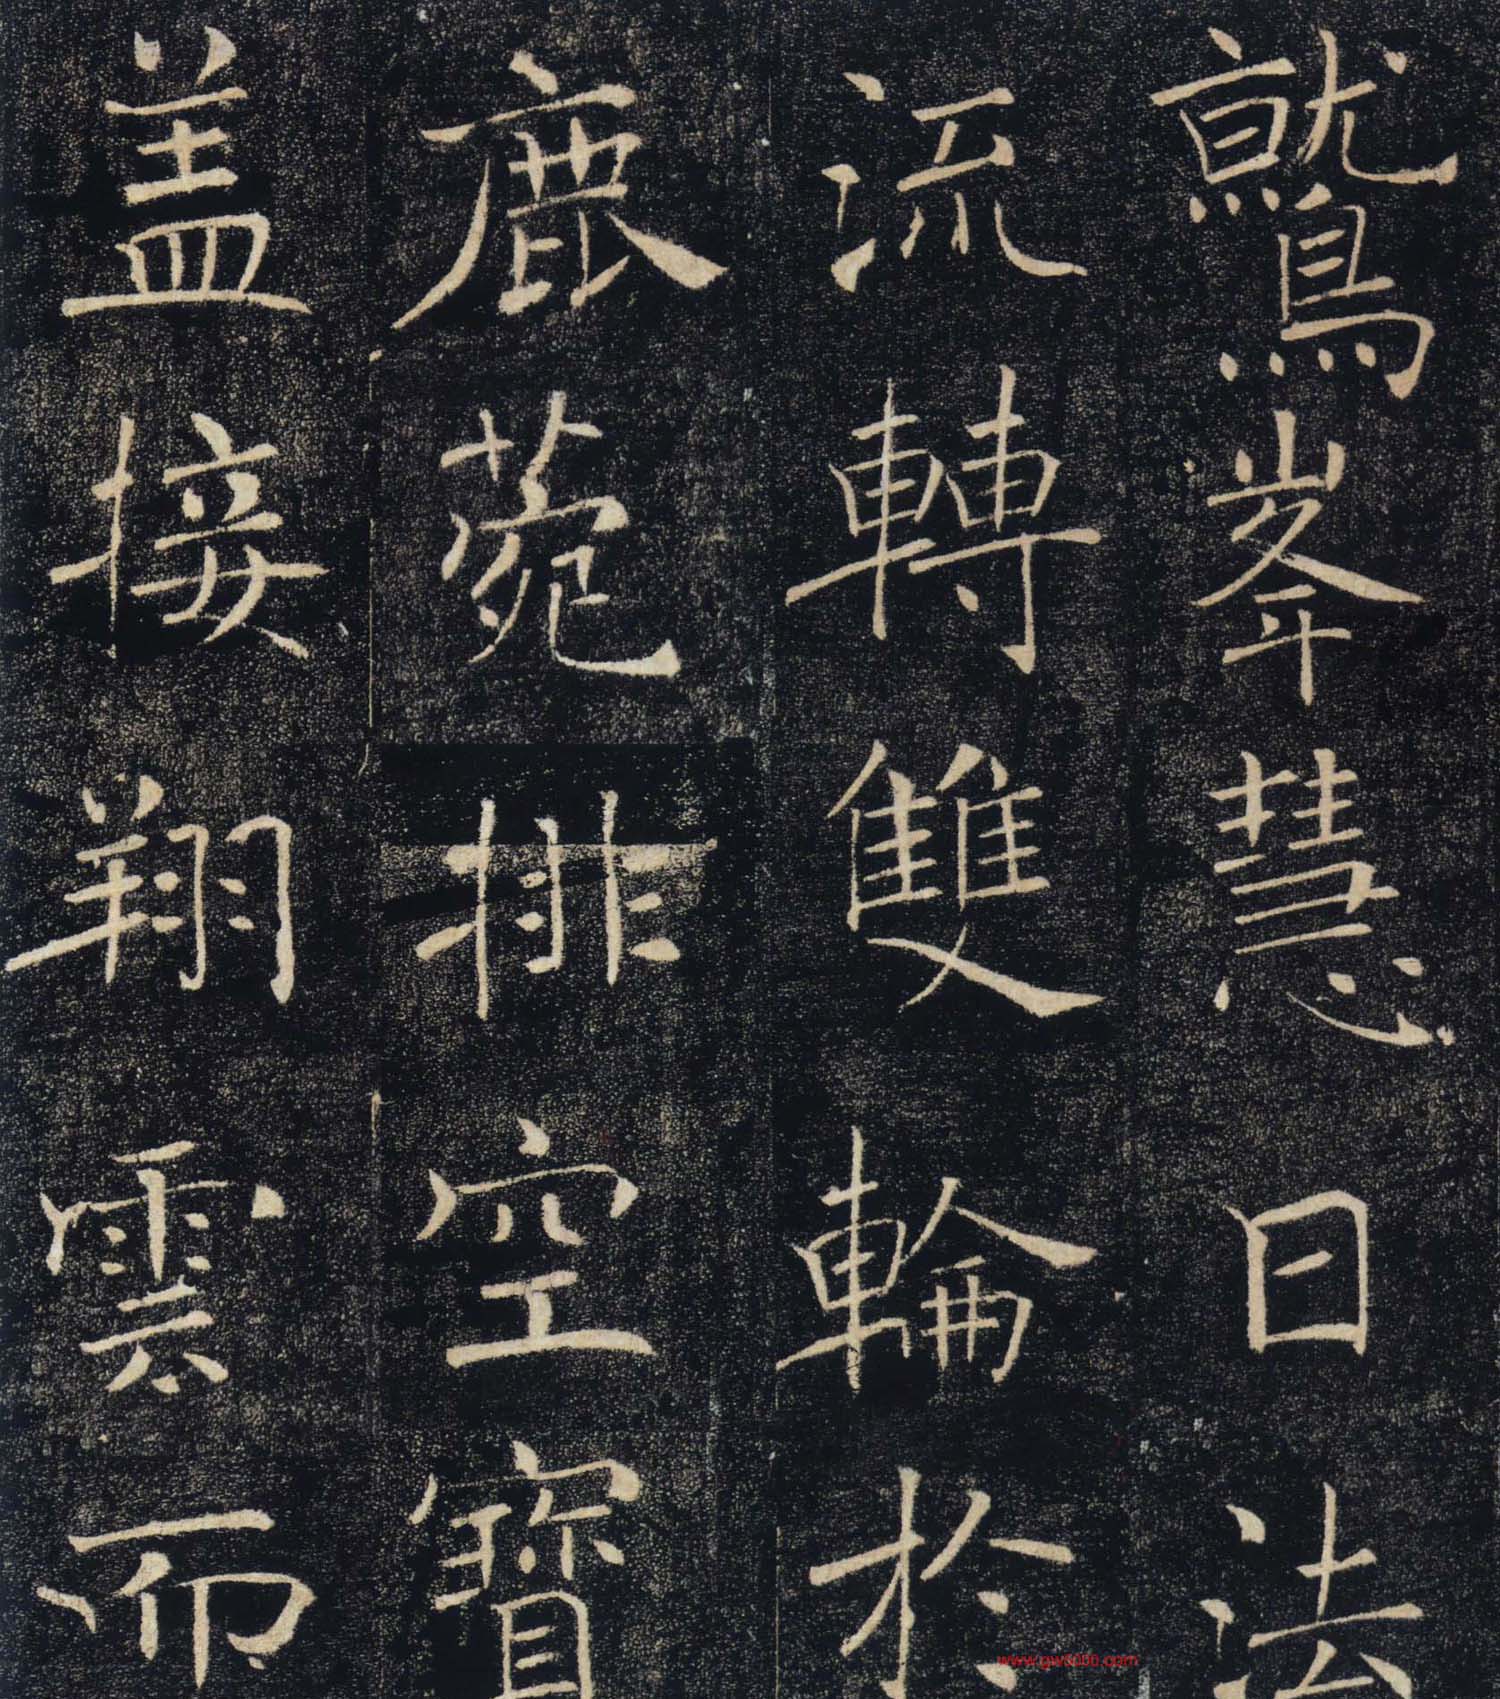 鷲峯慧日法
流轉雙輪於
鹿菀排空寶
盖接翔雲而
www.gw8080.com